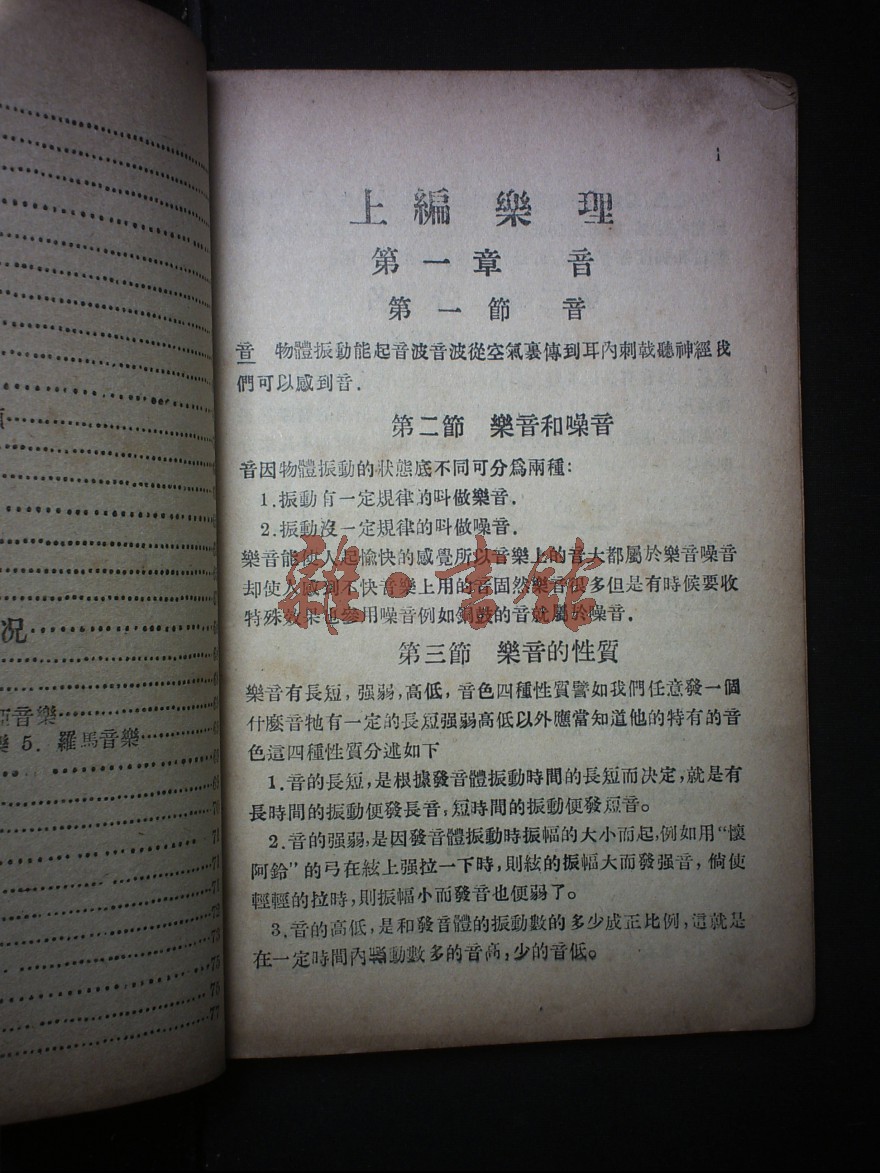 况
音樂
5. 羅馬音樂
70
71
71
71
72
73
75
75
77
1
上編 樂理
第一章 音
第一節 音
音 物體振動能起音波音波從空氣裏傳到耳內刺戟聽神經我
們可以感到音.
第二節 樂音和噪音
音因物體振動的狀態底不同可分爲兩種:
1.振動有一定規律的叫做樂音.
2.振動沒一定規律的叫做噪音.
樂音能使人起愉快的感覺所以音樂上的音大都屬於樂音噪音
却使人感到不快音樂上用的音固然樂音很多但是有時候要收
特殊效果也要用噪音例如銅鼓的音就屬於噪音.
雜·書館
第三節 樂音的性質
樂音有長短, 强弱, 高低, 音色四種性質譬如我們任意發一個
什麼音牠有一定的長短强弱高低以外應當知道他的特有的音
色這四種性質分述如下
1.音的長短, 是根據發音體振動時間的長短而决定, 就是有
長時間的振動便發長音, 短時間的振動便發短音。
2.音的强弱, 是因發音體振動時振幅的大小而起, 例如用“懷
阿鈴”的弓在絃上强拉一下時, 則絃的振幅大而發强音, 倘使
輕輕的拉時, 則振幅小而發音也便弱了。
3.音的高低, 是和發音體的振動數的多少成正比例, 這就是
在一定時間內動數多的音高, 少的音低。